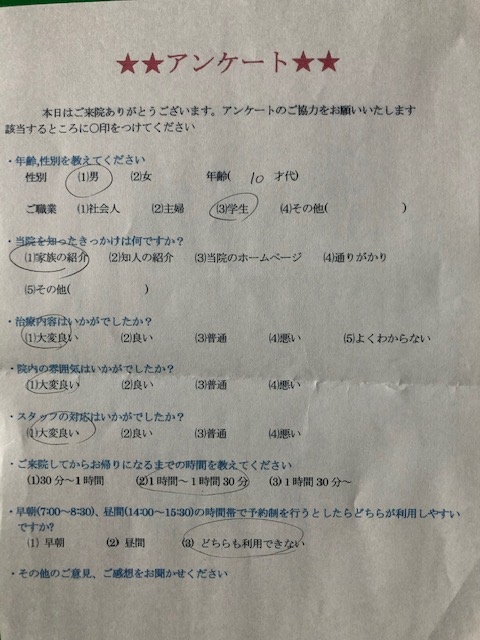 ★★アンケート★★
本日はご来院ありがとうございます。アンケートのご協力をお願いいたします
該当するところに○印をつけてください
・年齢,性別を教えてください
性別 (1)男 (2)女 年齢( 10 才代)
ご職業 (1)社会人 (2)主婦 (3)学生 (4)その他( )
・当院を知ったきっかけは何ですか？
(1)家族の紹介 (2)知人の紹介 (3)当院のホームページ (4)通りがかり
(5)その他( )
・治療内容はいかがでしたか？
(1)大変良い (2)良い (3)普通 (4)悪い (5)よくわからない
・院内の雰囲気はいかがでしたか？
(1)大変良い (2)良い (3)普通 (4)悪い
・スタッフの対応はいかがでしたか？
(1)大変良い (2)良い (3)普通 (4)悪い
・ご来院してからお帰りになるまでの時間を教えてください
(1)30分～1時間 (2)1時間～1時間30分 (3)1時間30分～
・早朝(7:00～8:30)、昼間(14:00～15:30)の時間帯で予約制を行うとしたらどちらが利用しやすい
ですか?
(1) 早朝 (2) 昼間 (3) どちらも利用できない
・その他のご意見、ご感想をお聞かせください